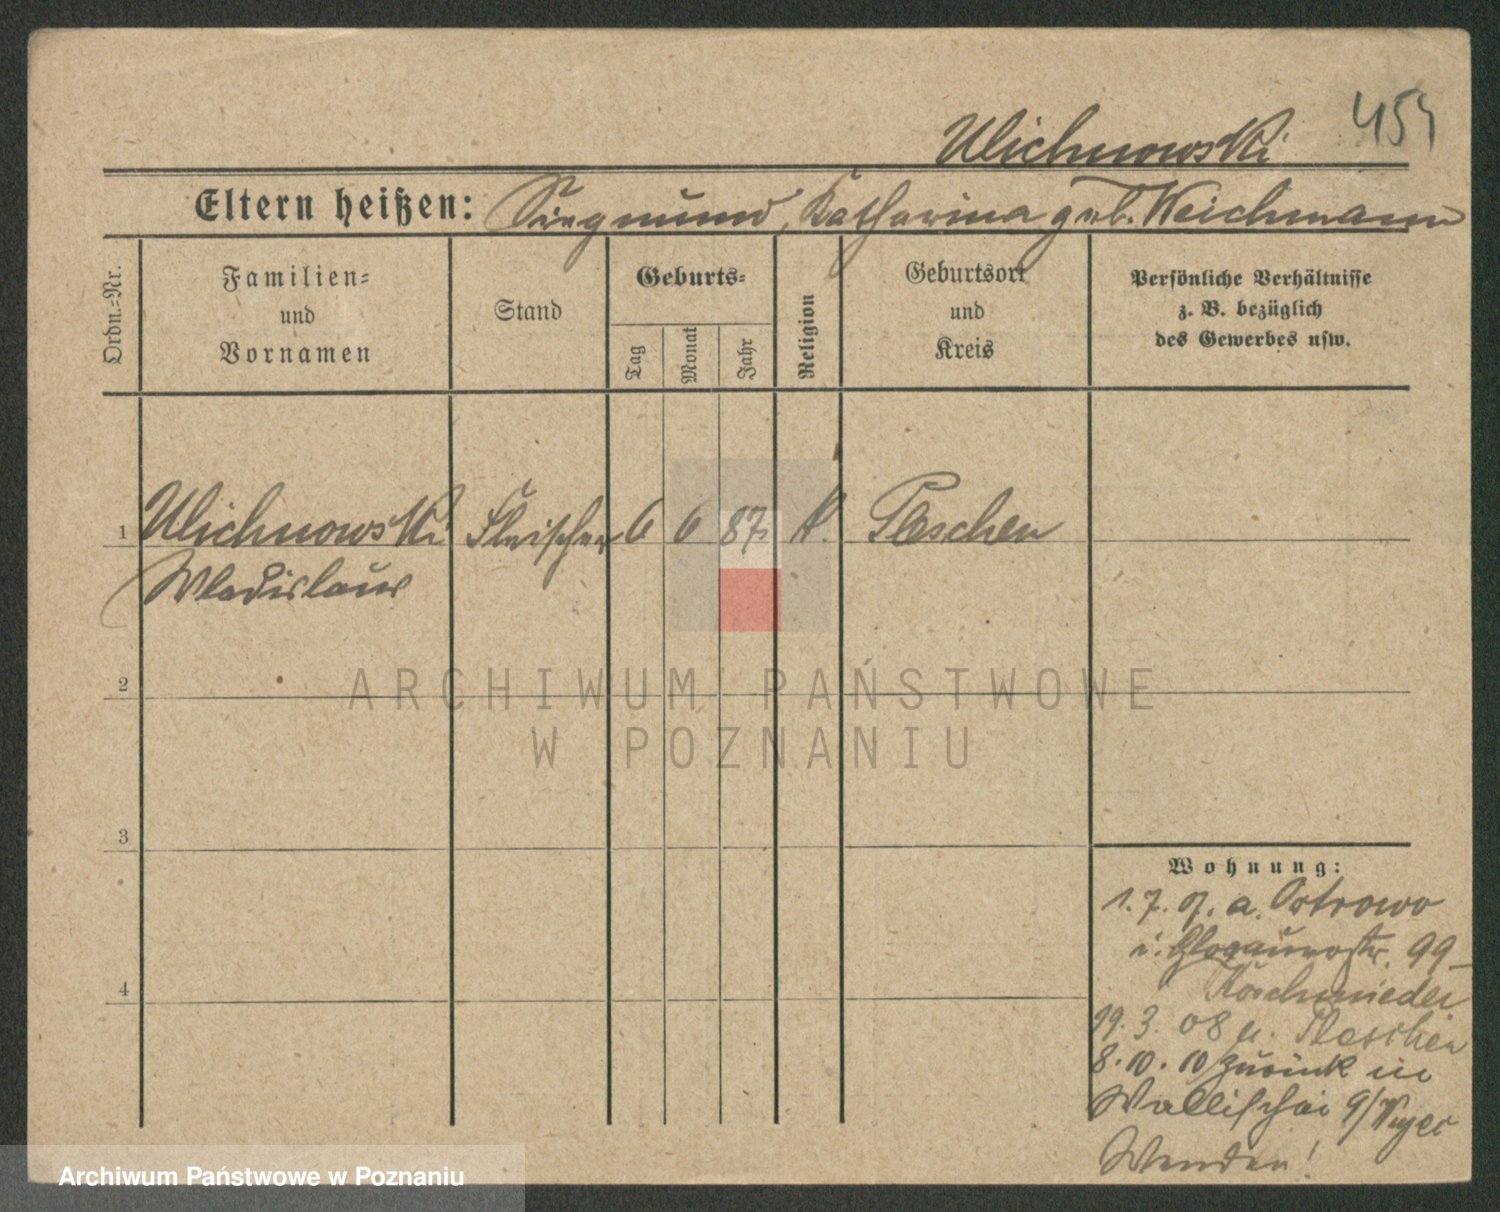 454
Ulichnowski
Eltern heißen: Siegmund, Katharina geb. Weichmann
Ordn.-Nr.
Familien-
und
Vornamen
Stand
Geburts-
Tag
Monat
Jahr
Religion
Geburtsort
und
Kreis
Persönliche Verhältnisse
z. B. bezüglich
des Gewerbes usw.
1 Ulichnowski Fleischer 6 6 87 k. Pleschen
Wladislaus
2
3
4
Wohnung:
1. 7. 07. a. Ostrowo
i. Glogauerstr. 99
Koschmieder
19. 3. 08 n. Pleschen
8. 10. 10 zurück in
Wallischei 9/
Wenden!
ARCHIWUM PAŃSTWOWE
W POZNANIU
Archiwum Państwowe w Poznaniu